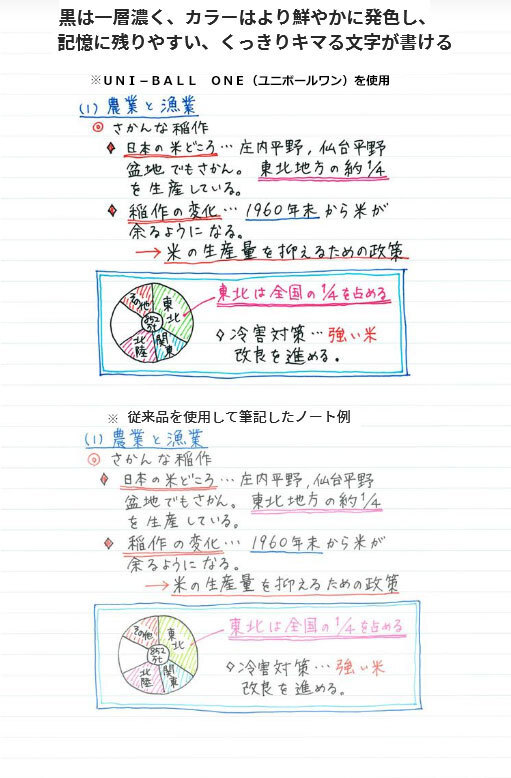 黒は一層濃く、カラーはより鮮やかに発色し、
記憶に残りやすい、くっきりキマる文字が書ける
※UNI－BALL ONE（ユニボールワン）を使用
(1) 農業と漁業
◎ さかんな稲作
◆ 日本の米どころ… 庄内平野, 仙台平野
盆地でもさかん。 東北地方の約1/4
を生産している。
◆ 稲作の変化… 1960年末から米が
余るようになる。
→ 米の生産量を抑えるための政策
その他
東北
852万t
北陸
関東
東北は全国の1/4を占める
◇冷害対策…強い米
改良を進める。
※ 従来品を使用して筆記したノート例
(1) 農業と漁業
◎ さかんな稲作
◆ 日本の米どころ… 庄内平野, 仙台平野
盆地でもさかん。 東北地方の約1/4
を生産している。
◆ 稲作の変化… 1960年末から米が
余るようになる。
→ 米の生産量を抑えるための政策
その他
東北
852万t
北陸
関東
東北は全国の1/4を占める
◇冷害対策…強い米
改良を進める。